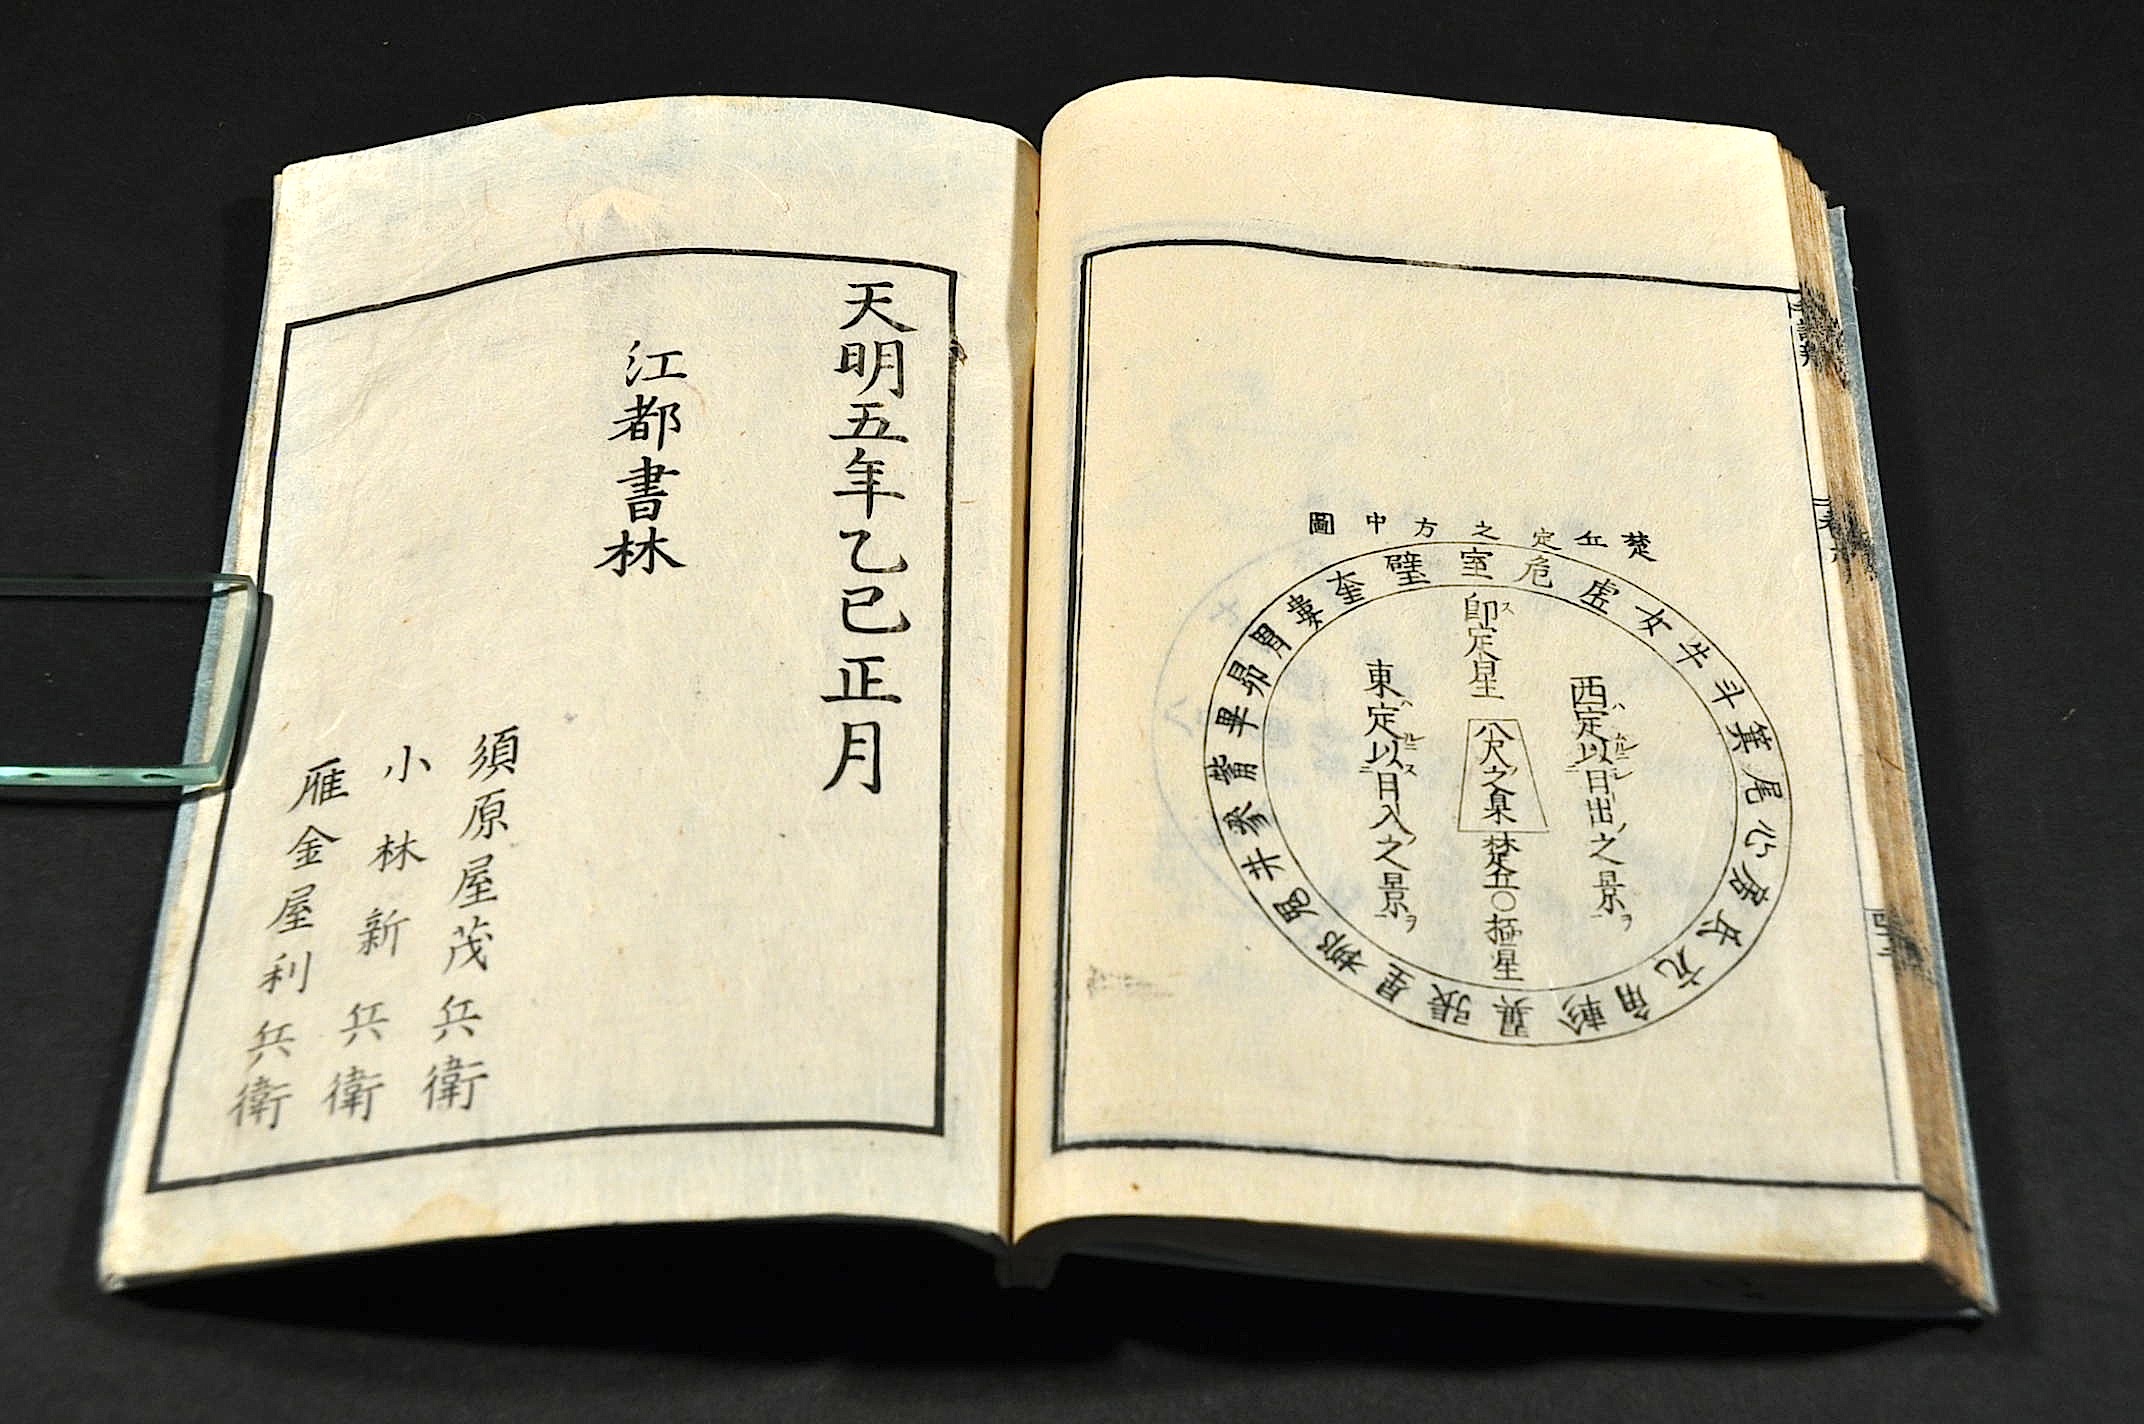 楚丘定之方中圖
室危虚女牛斗箕尾心房氐亢角軫翼張星柳鬼井參觜畢昴胃婁奎壁
西定ハ以日出ノ之景ヲ
即定星
八尺之臬
楚丘〇極星
東定ハ以日入ノ之景ヲ
天明五年乙巳正月
江都書林
須原屋茂兵衛
小林新兵衛
雁金屋利兵衛